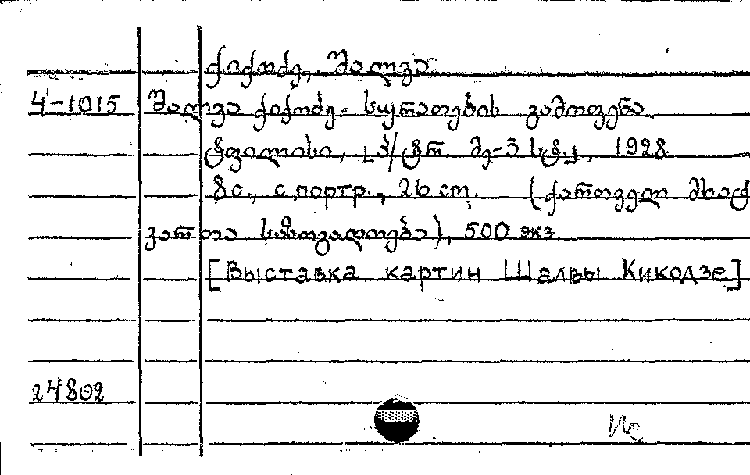 ქიქოძე, შალვა.
4-1015 შალვა ქიქოძე. სურათების გამოფენა.
ტფილისი, [პ/ტრ. მე-3 სტ.], 1928
8 с., с портр., 26 см. (ქართველ მხატ
ვართა საზოგადოება), 500 экз
[Выставка картин Шалвы Кикодзе]
24802